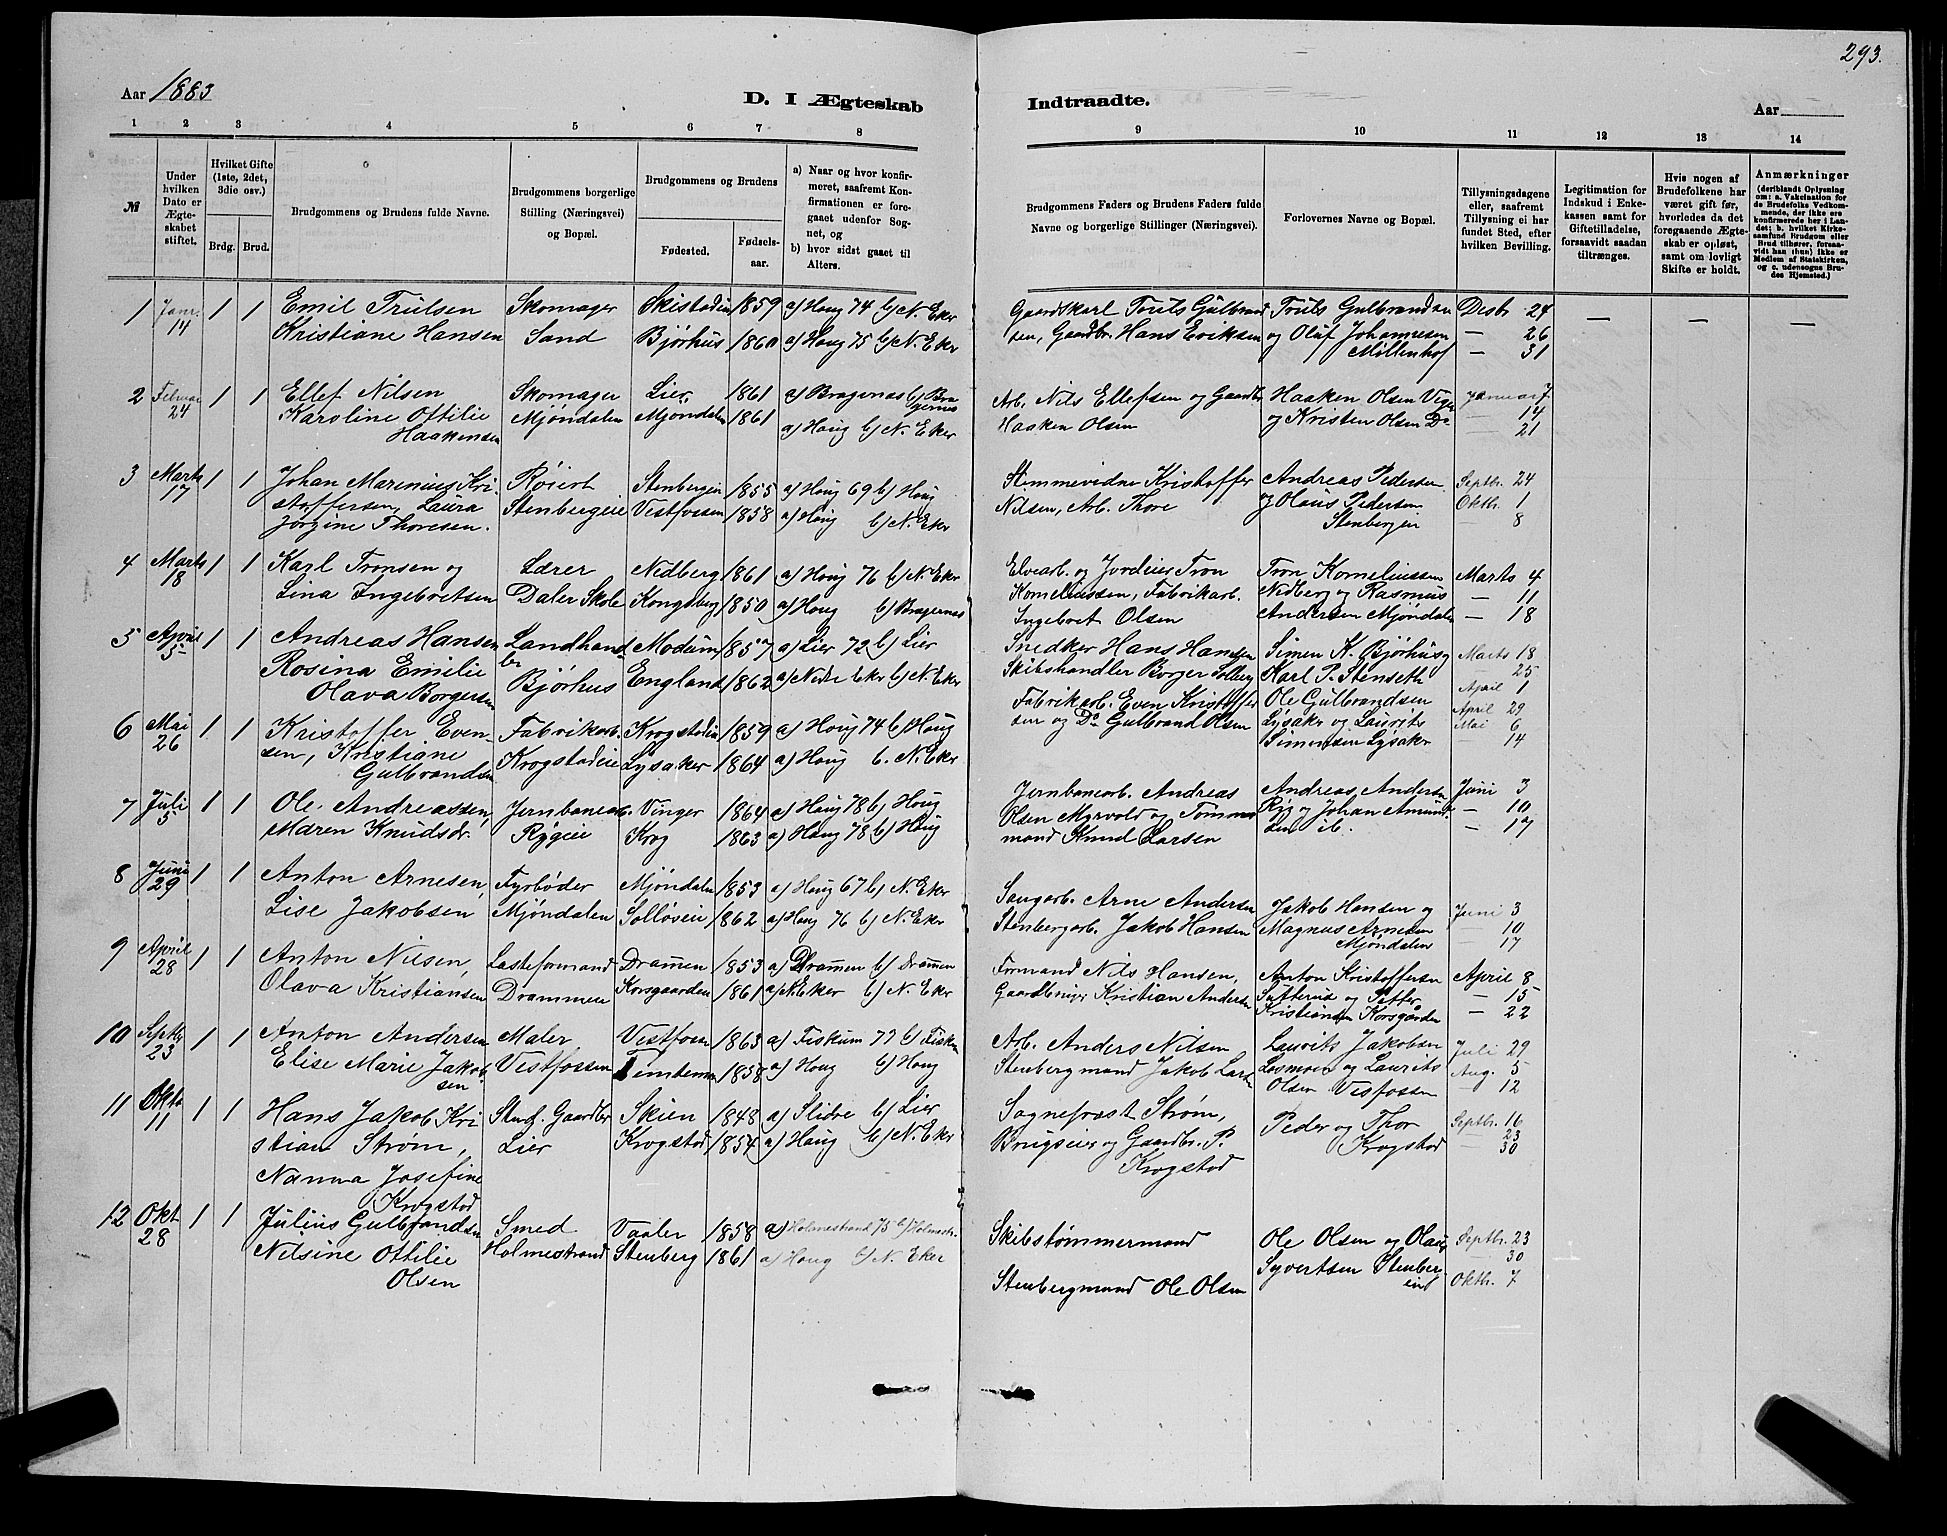 293.
Aar 1883
D. I Ægteskab Indtraadte.
Aar
1 2 3 4 5 6 7 8 9 10 11 12 13 14
№
Under hvilken Dato er Ægteskabet stiftet.
Hvilket Gifte (1ste, 2det, 3die osv.)
Brdg. Brud.
Brudgommens og Brudens fulde Navne.
Brudgommens borgerlige Stilling (Næringsvei) og Bopæl.
Brudgommens og Brudens
Fødested. Fødsels-aar.
a) Naar og hvor konfirmeret, saafremt Konfirmationen er foregaaet udenfor Sognet, og
b) hvor sidst gaaet til Alters.
Brudgommens Faders og Brudens Faders fulde Navne og borgerlige Stillinger (Næringsvei).
Forlovernes Navne og Bopæl.
Tillysningsdagene eller, saafremt Tillysning ei har fundet Sted, efter hvilken Bevilling.
Legitimation for Indskud i Enkekassen samt for Giftetilladelse, forsaavidt saadan tiltrænges.
Hvis nogen af Brudefolkene har været gift før, hvorledes da det foregaaende Ægteskab er opløst, samt om lovligt Skifte er holdt.
Anmærkninger
(deriblandt Oplysning om: a. Vakcination for de Brudefolks Vedkommende, der ikke ere konfirmerede her i Landet; b. hvilket Kirkesamfund Brudgom eller Brud tilhører, forsaavidt han (hun) ikke er Medlem af Statskirken, og c. udensogns Brudes Hjemsted.)
1 Janr. 14 1 1 Emil Trulsen Skomager Skistadeie 1859 a) Houg 74 b) N. Eker Gaardskarl Truls Gulbrand Truls Gulbrandsen Desbr 24 — — —
Kristiane Hansen Sand Bjørhus 1860 a) Houg 75 b) N. Eker sen, Gaardbr. Hans Eriksen og Oluf Johannesen — 26
Millenhof — 31
2 Februar 24 1 1 Ellef Nilsen Skomager Lier 1861 a) Bragernas b) Bragernes Arb. Nils Ellefsen og Gaardbr. Haaken Olsen Januar 7
Karoline Ottilie Mjøndalen Mjøndalen 1861 Haaken Olsen og Kristen Olsen Do — 14
Haakensen a) Houg b) N. Eker — 21
3 Marts 17 1 1 Johan Marenius Kri- Røiert Stenbergeie 1855 a) Houg 69 b) Houg Kristoffer Andreas Pedersen Septbr. 24
stoffersen, Laura Stenbergeie Vestfossen 1858 a) Houg b) N. Eker Nilsen, Arb. Thore og Olaus Pedersen Oktbr. 1
Jørgine Thoresen. Stenbergeie — 8
4 Marts 18 1 1 Karl Tronsen og Lærer Nedberg 1861 a) Houg 76 b) N. Eker Elvearb. og Jordeier Tron Tron Korneliussen Marts 4
Lina Ingebretsen Daler Skole Kongsberg 1850 a) Houg b) Bragernas Korneliussen, Fabrikarb. Nedberg og Rasmus — 11
Ingebret Olsen Andersen Mjøndalen — 18
5 April 5 1 1 Andreas Hansen Landhand- Modum 1857 a) Lier 72 b) Lier Snedker Hans Hansen Simen K. Bjørhus og Marts 18
Rosina Emilie ler Bjørhus England 1862 a) Nedre Eker b) N. Eker Skibshandler Borger Solberg Karl P. Stenseth 25
Olava Borgersen April 1
6 Mai 26 1 1 Kristoffer Even- Fabrikarb. Krogstadeie 1859 a) Houg 74 b) Houg Fabrikarb. Even Kristoffer Ole Gulbrandsen April 29
sen, Kristiane Krogstadeie Lysaker 1864 a) Houg b. N. Eker sen og Do Gulbrand Olsen Lysaker og Laurits Mai 6
Gulbrandsen Simensen Lysaker — 14
7 Juli 5 1 1 Ole Andreassen, Jernbanearb. Vinger 1864 a) Houg 78 b) Houg Jernbanearb. Andreas Andreas Andersen Juni 3
Maren Knudsdr. Rygeie Krog 1863 a) Houg 78 b) Houg Olsen Myrvold og Tømmer- og Johan Amund- — 10
mand Knud Larsen sen ib. — 17
8 Juni 29 1 1 Anton Arnesen, Fyrbøder Mjøndalen 1853 a) Houg 67 b) N. Eker Saugarb. Arne Andersen Jakob Hansen og Juni 3
Lise Jakobsen Mjøndalen 1862 a) Houg 76 b) N. Eker Stenbergarb. Jakob Hansen Magnus Arnesen — 10
Mjøndalen — 17
9 April 28 1 1 Anton Nilsen, Lasteformand Dramen 1853 a) Dramen b) Dramen Formand Nils Hansen, Anton Kristoffersen April 8
Olava Kristiansen Drammen Korsgaarden 1861 a) N. Eker b) N. Eker Gaardbruger Kristian Andersen og — 15
Kristiansen Korsgården — 22
10 Septbr 23 1 1 Anton Andersen Maler Vestfossen 1863 a) Fiskum 77 b) Fiskum Arb. Anders Nilsen Laurits Jakobsen Juli 29
Elise Marie Jakob- Vestfossen 1858 a) Houg b) Houg Stenbergmand Jakob Larsen og Laurits Aug. 5
sen Olsen Vesfossen — 12
11 Oktb 11 1 1 Hans Jakob Kri- Stud. Gaardbr Skien 1848 a) Slidre b) Lier Sognepræst Strøm, Peder og Thor Septbr. 16
stian Strøm, Lier Krogstad 1854 a) Houg b) N. Eker Brugseier og Gaardbr. P. Krogstad — 23
Nanna Josefine Krogstad — 30
Krogstad
12 Okt 28 1 1 Julius Gulbrandsen Smed Vaaler 1858 a) Holmestrand 75 b) Holmestr. Skibstømmermand Ole Olsen og Olaus Septbr. 23
Nilsine Ottilie Holmestrand Stenberg 1861 a) Houg b) N. Eker Syvertsen Stenberg — 30
Olsen Stenbergmand Ole Olsen eie Oktbr. 7